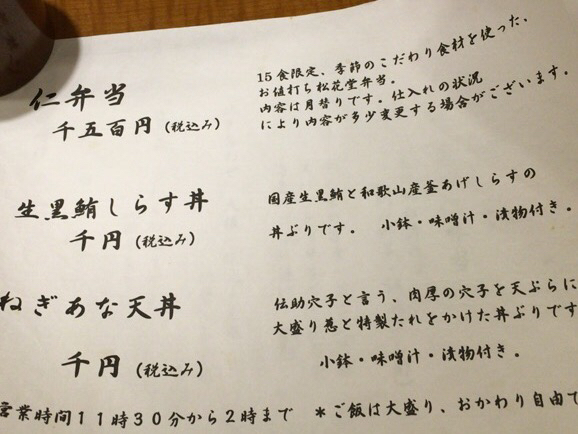 仁弁当
千五百円（税込み）
15食限定、季節のこだわり食材を使った、
お値打ち松花堂弁当。
内容は月替りです。仕入れの状況
により内容が多少変更する場合がございます。
生黒鮪しらす丼
千円（税込み）
国産生黒鮪と和歌山産釜あげしらすの
丼ぶりです。　小鉢・味噌汁・漬物付き。
ねぎあな天丼
千円（税込み）
伝助穴子と言う、肉厚の穴子を天ぷらに
大盛り葱と特製たれをかけた丼ぶりです
小鉢・味噌汁・漬物付き。
営業時間１１時３０分から２時まで　＊ご飯は大盛り、おかわり自由で